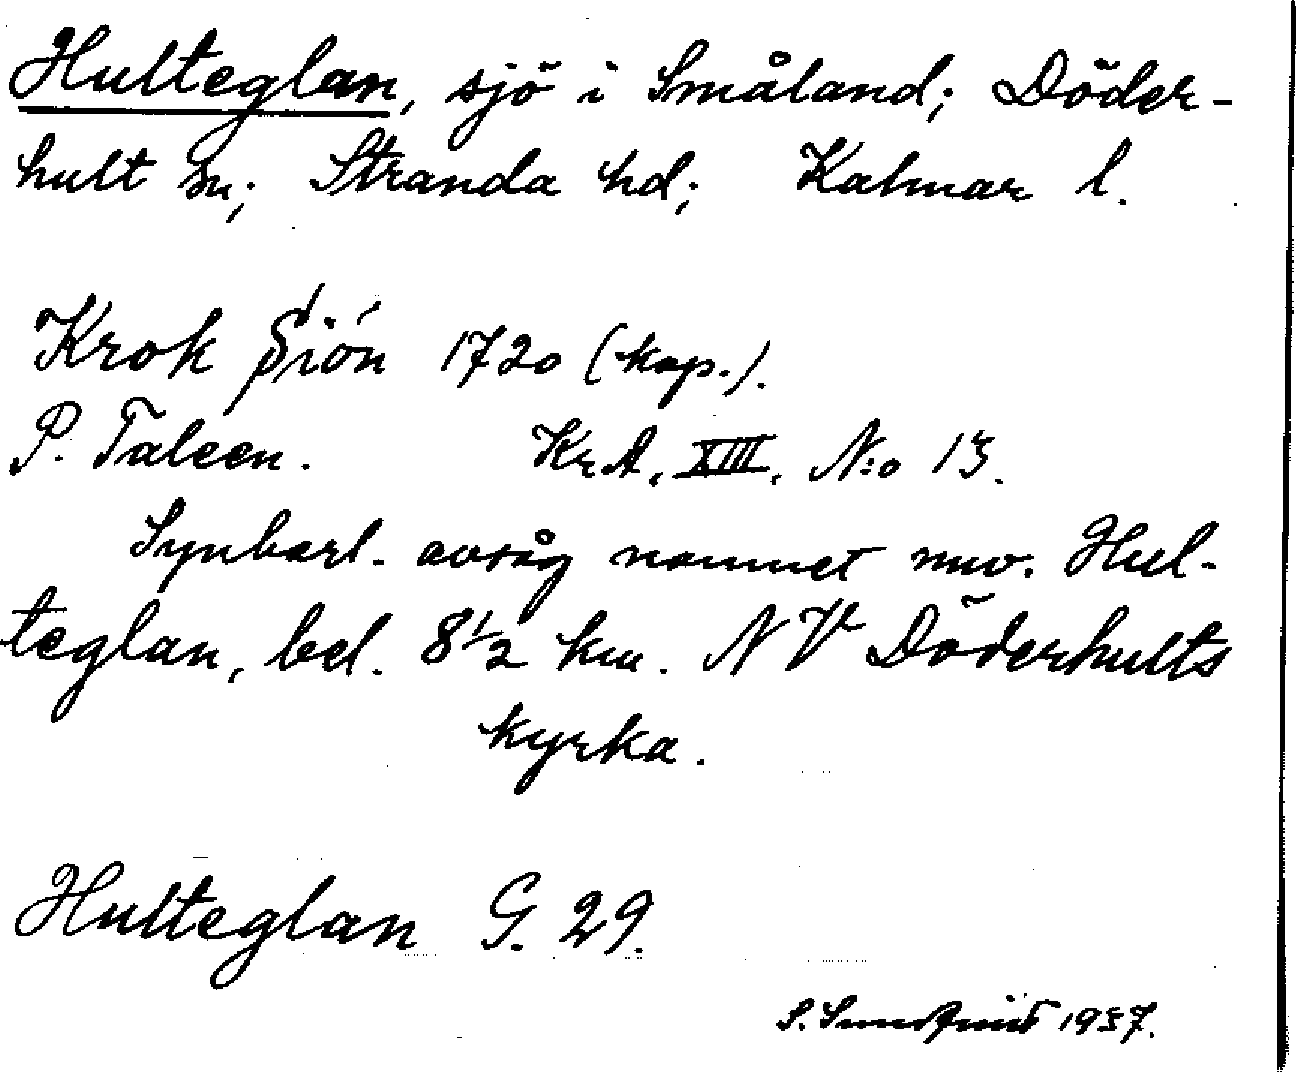 Hulteglan, sjö i Småland; Döder-
hult sn; Stranda hd; Kalmar l.
Krok Siön 1720 (kop.).
P. Taleen. KrA, XIII, N:o 13.
Synbarl. avsåg namnet nuv. Hul-
teglan, bel. 8 1/2 km. NV Döderhults
kyrka.
Hulteglan G. 29.
S. 1937.